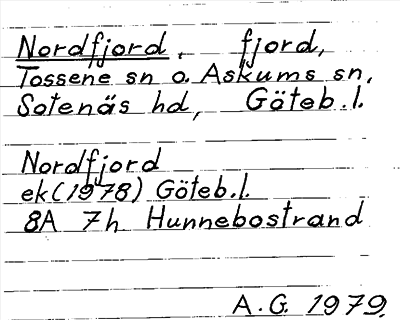 Nordfjord, fjord,
Tossene sn o. Askums sn,
Sotenäs hd, Göteb.l.
Nordfjord
ek (1978) Göteb.l.
8A 7h Hunnebostrand
A.G. 1979.